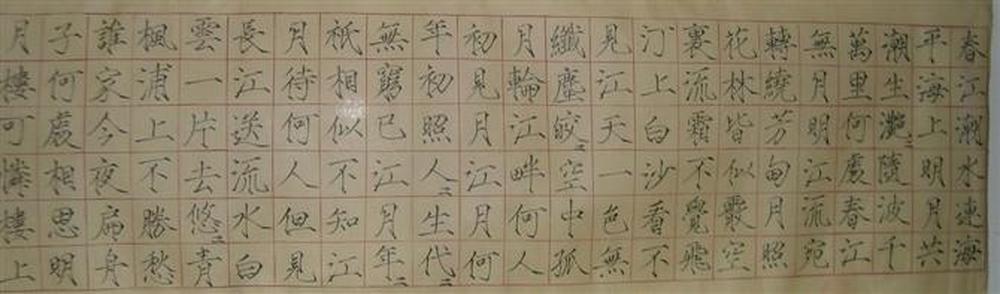 春江潮水連海
平海上明月共
潮生灩〻隨波千
萬里何處春江
無月明江流宛
轉繞芳甸月照
花林皆似霰空
裏流霜不覺飛
汀上白沙看不
見江天一色無
纖塵皎〻空中孤
月輪江畔何人
初見月江月何
年初照人〻生代〻
無窮已江月年〻
祇相似不知江
月待何人但見
長江送流水白
雲一片去悠〻青
楓浦上不勝愁
誰家今夜扁舟
子何處相思明
月樓可憐樓上